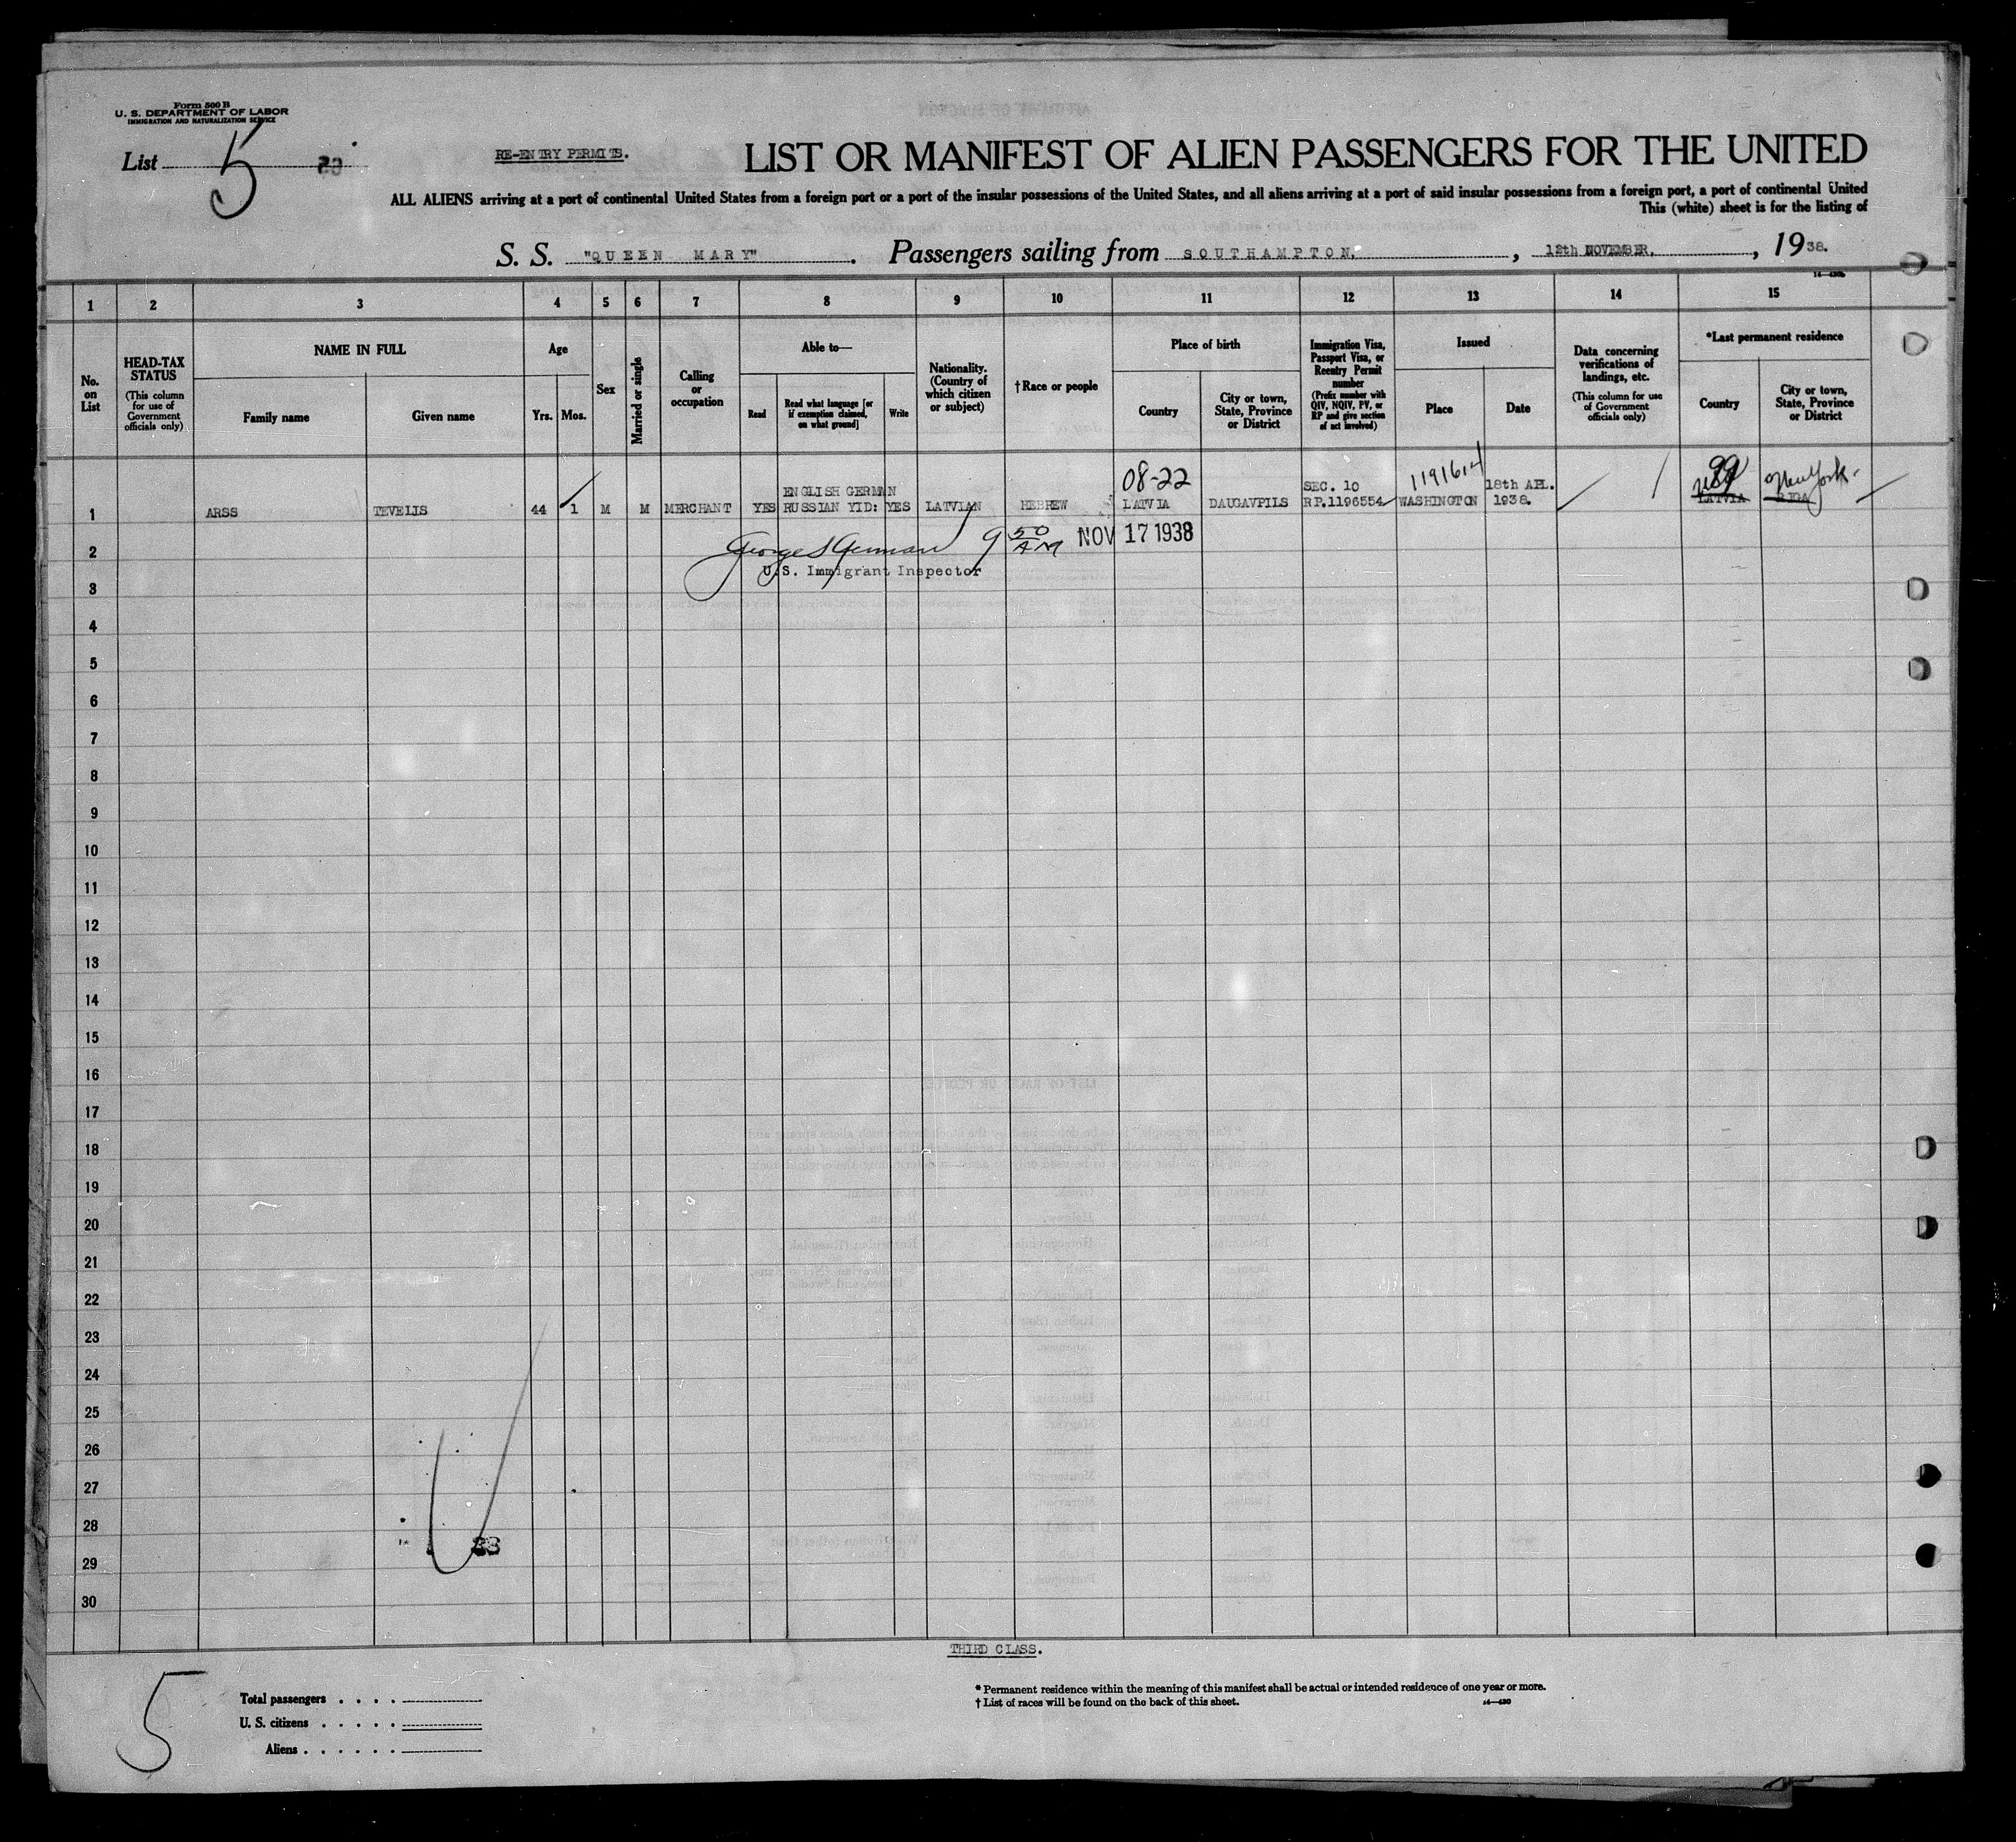 Form 500 B
U. S. DEPARTMENT OF LABOR
IMMIGRATION AND NATURALIZATION SERVICE
List 5
RE-ENTRY PERMITS.
LIST OR MANIFEST OF ALIEN PASSENGERS FOR THE UNITED
ALL ALIENS arriving at a port of continental United States from a foreign port or a port of the insular possessions of the United States, and all aliens arriving at a port of said insular possessions from a foreign port, a port of continental United
This (white) sheet is for the listing of
S. S. "QUEEN MARY". Passengers sailing from SOUTHAMPTON, , 12th NOVEMBER, , 1938.
1 2 3 4 5 6 7 8 9 10 11 12 13 14 15
No. on List
HEAD-TAX STATUS (This column for use of Government officials only)
NAME IN FULL
Family name
Given name
Age
Yrs.
Mos.
Sex
Married or single
Calling or occupation
Able to—
Read
Read what language [or if exemption claimed, on what ground]
Write
Nationality. (Country of which citizen or subject)
† Race or people
Place of birth
Country
City or town, State, Province or District
Immigration Visa, Passport Visa, or Reentry Permit number (Prefix number with QIV, NQIV, PV, or RP and give section of act involved)
Issued
Place
Date
Data concerning verifications of landings, etc. (This column for use of Government officials only)
*Last permanent residence
Country
City or town, State, Province or District
08-22
1191614
99
New York.
ENGLISH GERMAN
SEC. 10
18th APL.
1 ARSS TEVELIS 44 1 M M MERCHANT YES RUSSIAN YID: YES LATVIAN HEBREW LATVIA DAUGAVPILS RP.1196554 WASHINGTON 1938. LATVIA RIGA
2 George S German 9 50 AM NOV 17 1938
U.S. Immigrant Inspector
3
4
5
6
7
8
9
10
11
12
13
14
15
16
17
18
19
20
21
22
23
24
25
26
27
28
29
30
THIRD CLASS.
5
Total passengers . . . .
U. S. citizens . . . . .
Aliens . . . . . .
* Permanent residence within the meaning of this manifest shall be actual or intended residence of one year or more.
† List of races will be found on the back of this sheet.